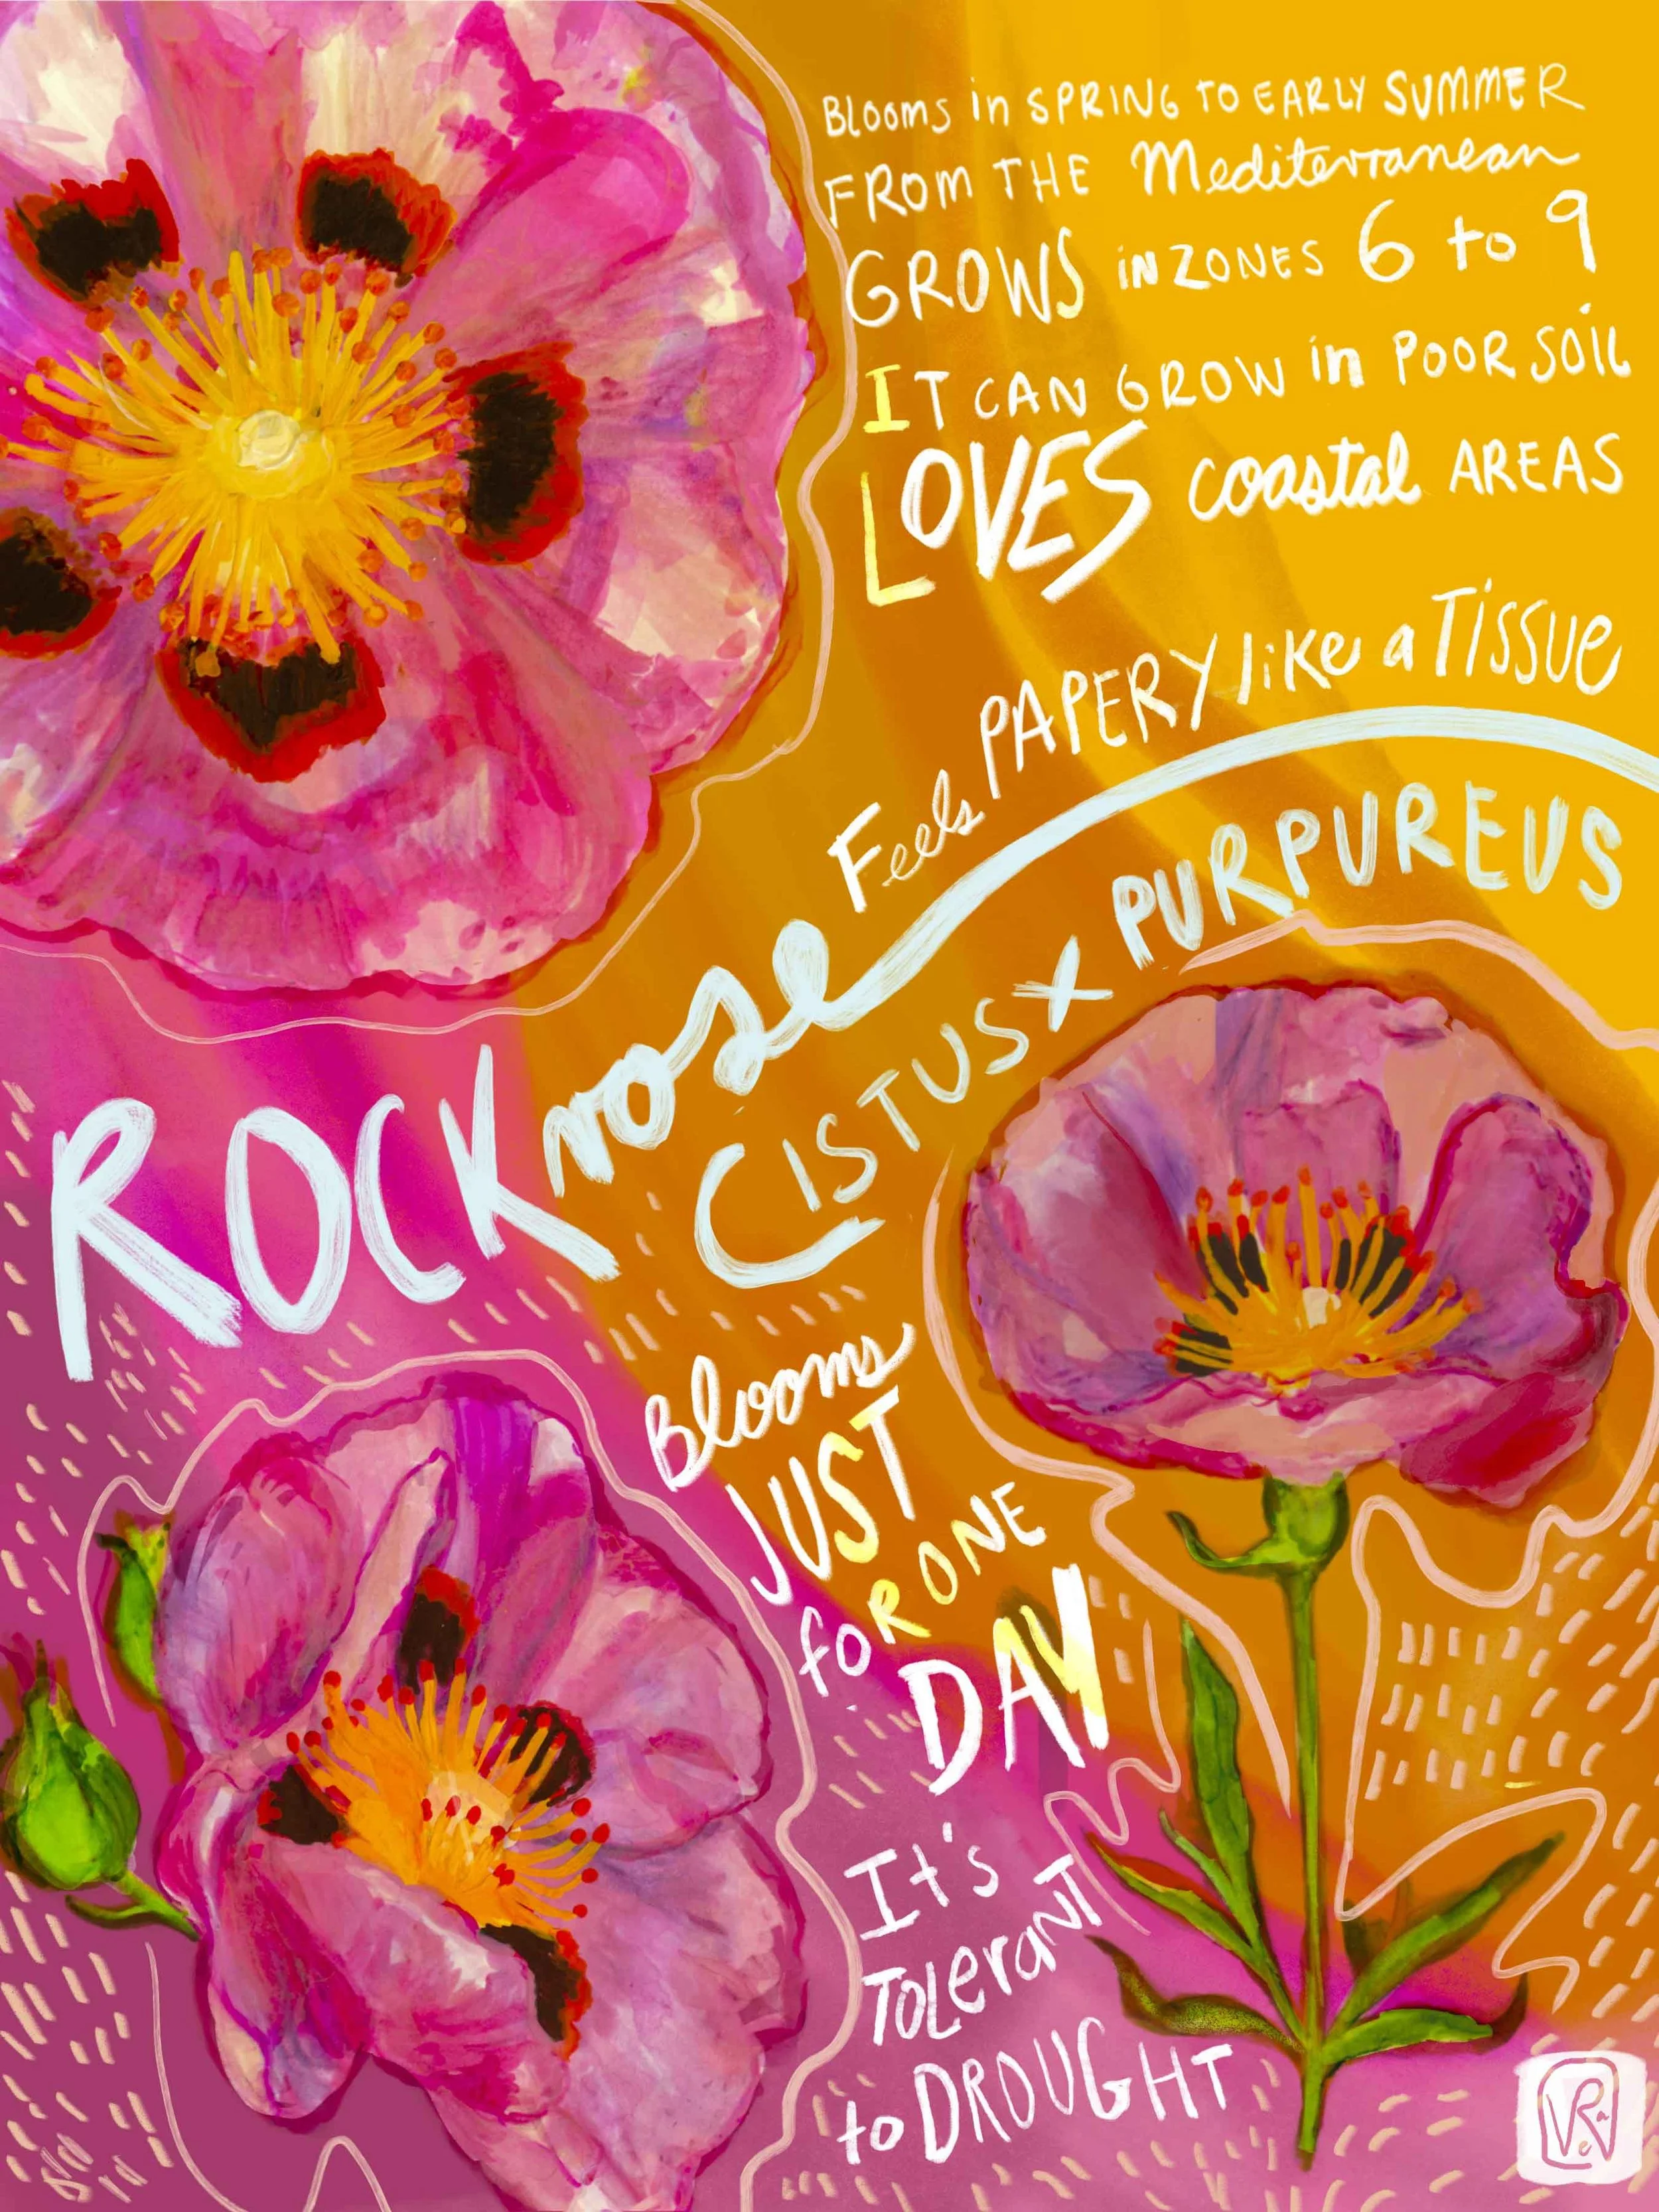 Blooms in SPRING TO EARLY SUMMER
FROM THE Mediterranean
GROWS in ZONES 6 to 9
IT CAN GROW in POOR SOIL
LOVES coastal AREAS
Feels PAPERY like a Tissue
ROCK rose
CISTUS X PURPUREUS
Blooms
JUST
for ONE
DAY
It's
TOLeranT
to DROUGHT